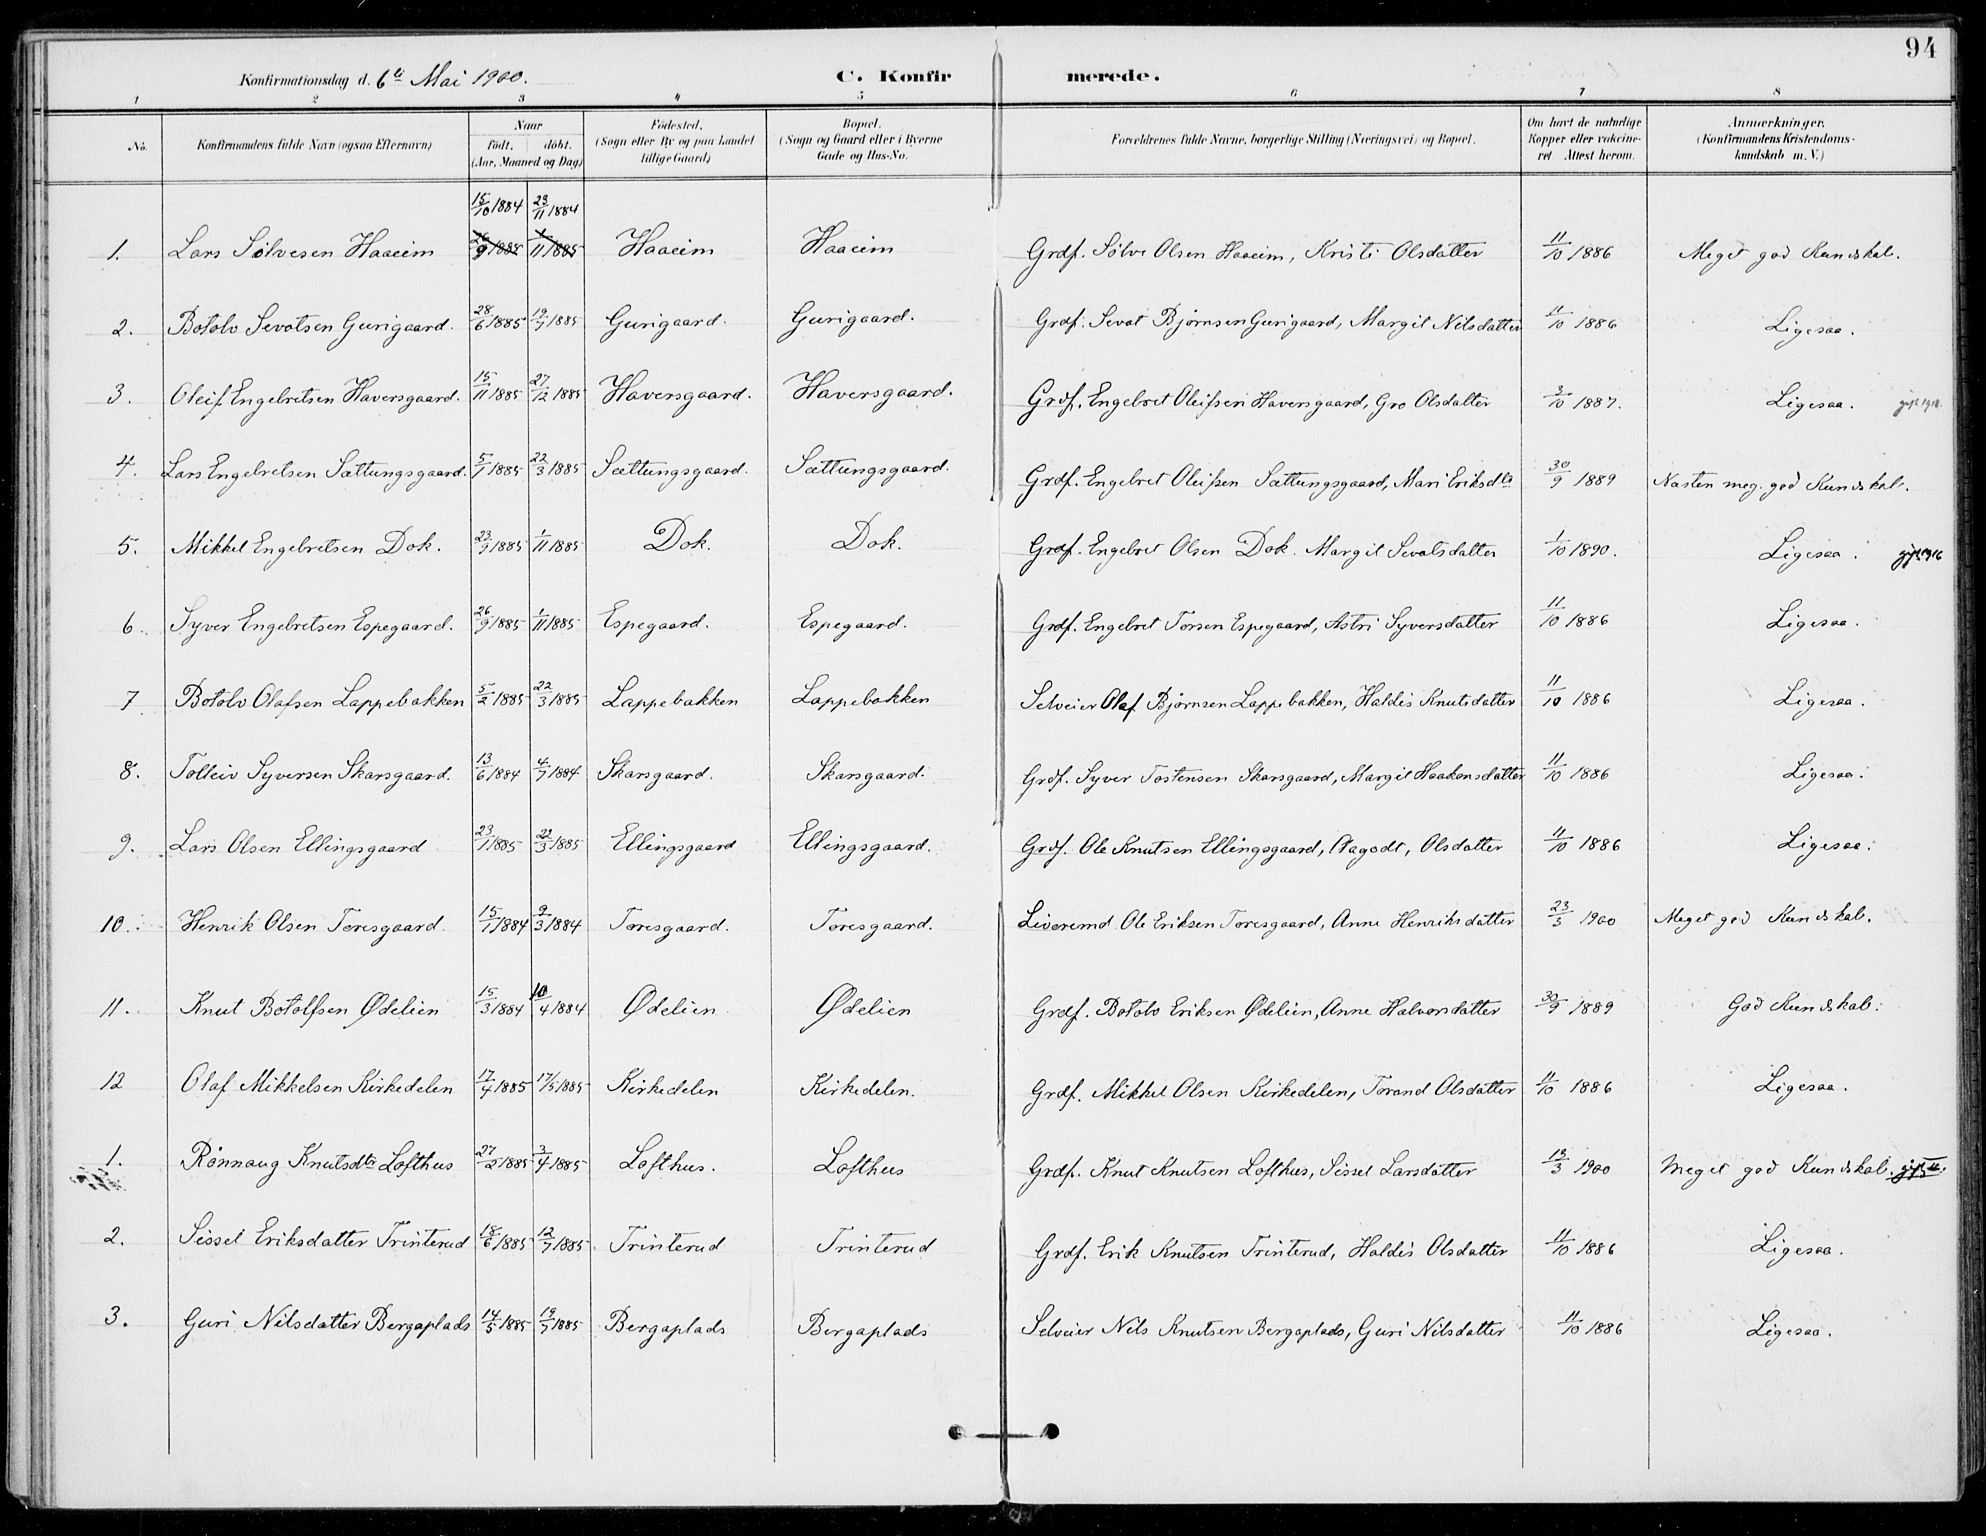 94
Konfirmationsdag d. 6te Mai 1900. C. Konfirmerede.
1 2 3 4 5 6 7 8
No. Konfirmandens fulde Navn (ogsaa Efternavn) Naar födt. döbt. (Aar, Maaned og Dag) Födested. (Sogn eller By og paa Landet tillige Gaard) Bopæl. (Sogn og Gaard eller i Byerne Gade og Hus-No. Forældrenes fulde Navne, borgerlige Stilling (Næringsvei) og Bopæl. Om havt de naturlige Kopper eller vakcineret Attest herom. Anmærkninger. (Konfirmandens Kristendomskundskab m. V.)
15/10 1884 23/11 1884
1. Lars Sölvesen Haaeim 26/9 1885 1/11 1885 Haaeim Haaeim Grdf. Sölve Olsen Haaeim, Kristi Olsdatter 11/10 1886 Meget god Kundskab.
2. Botolv Sevatsen Gurigaard. 28/6 1885 19/7 1885 Gurigaard. Gurigaard. Grdf. Sevat Björnsen Gurigaard, Margit Nilsdatter 11/10 1886 Ligesaa.
3. Oleif Engebretsen Haversgaard. 15/11 1885 27/12 1885 Haversgaard. Haversgaard. Grdf. Engebret Oleifsen Haversgaard, Gro Olsdatter 3/10 1887. Ligesaa.
4. Lars Engebretsen Sættungsgaard. 5/1 1885 22/3 1885 Sættungsgaard. Sættungsgaard. Grdf. Engebret Oleifsen Sættungsgaard, Mari Eriksdtr 30/9 1889 Næsten meg. god Kundskab.
5. Mikkel Engebretsen Dok. 23/9 1885 1/11 1885 Dok. Dok. Grdf. Engebret Olsen Dok. Margit Sevatsdatter 1/10 1890. Ligesaa. gift 1916
6. Syver Engebretsen Espegaard. 26/9 1885 1/11 1885 Espegaard. Espegaard. Grdf. Engebret Torsen Espegaard, Astri Syversdatter 11/10 1886 Ligesaa.
7 Botolv Olafsen Lappebakken 5/2 1885 22/3 1885 Lappebakken Lappebakken Selveier Olaf Björnsen Lappebakken, Haldis Knutsdatter 11/10 1886 Ligesaa.
8. Tolleiv Syversen Skarsgaard. 13/6 1884 4/7 1884 Skarsgaard. Skarsgaard. Grdf. Syver Tostensen Skarsgaard, Margit Haakonsdatter 11/10 1886 Ligesaa.
9. Lars Olsen Ellingsgaard 23/1 1885 22/3 1885 Ellingsgaard Ellingsgaard. Grdf. Ole Knutsen Ellingsgaard, Aagodt, Olsdatter 11/10 1886 Ligesaa.
10. Henrik Olsen Toresgaard. 15/1 1884 9/3 1884 Toresgaard. Toresgaard. Ole Eriksen Toresgaard, Anne Henriksdatter 23/3 1900 Meget god Kundskab.
11. Knut Botolfsen Ødelien 15/3 1884 10/4 1884 Ødelien Ødelien Grdf. Botolv Eriksen Ødelien, Anne Halvorsdatter 30/9 1889 God Kundskab.
12 Olaf Mikkelsen Kirkedelen 17/4 1885 17/5 1885 Kirkedelen Kirkedelen. Grdf. Mikkel Olsen Kirkedelen, Torand Olsdatter 11/10 1886 Ligesaa.
1. Rönnaug Knutsdtr Lofthus 27/2 1885 3/4 1885 Lofthus. Lofthus Grdf. Knut Knutsen Lofthus, Sissel Larsdatter 13/3 1900 Meget god Kundskab.
2. Sissel Eriksdatter Trinterud 18/6 1885 12/7 1885 Trinterud Trinterud Grdf. Erik Knutsen Trinterud, Haldis Olsdatter 11/10 1886 Ligesaa.
3. Guri Nilsdatter Bergaplads 14/5 1885 19/7 1885 Bergaplads Bergaplads Selveier Nils Knutsen Bergaplads, Guri Nilsdatter 11/10 1886 Ligesaa.